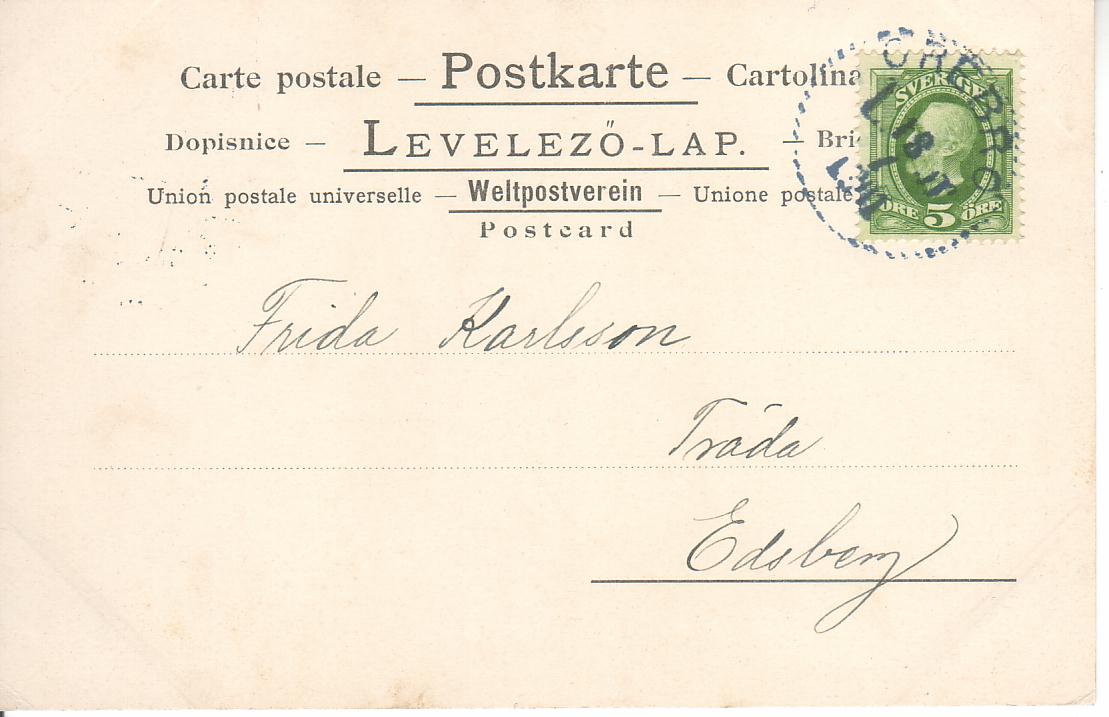 Carte postale — Postkarte — Cartolina
Dopisnice — LEVELEZŐ-LAP. — Bri
Union postale universelle — Weltpostverein — Unione postale
Postcard
ÖREBRO
SVERIGE
ÖRE 5 ÖRE
Frida Karlsson
Tråda
Edsberg